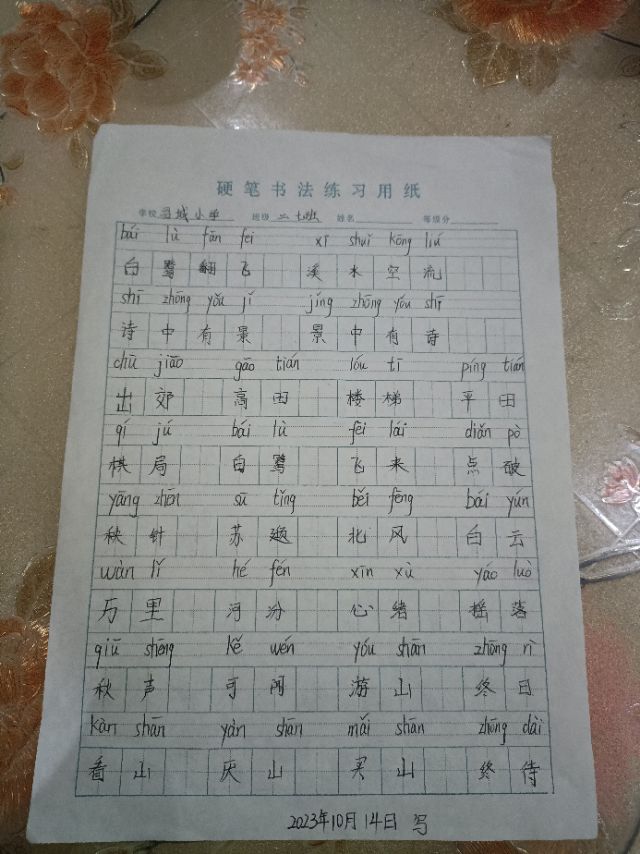 硬笔书法练习用纸
学校 城小学 班级 二七班 姓名 等级分
bái lù fān fēi xī shuǐ kōng liú
白鹭翻飞 溪水空流
shī zhōng yǒu jǐ jǐng zhōng yǒu shī
诗中有景 景中有诗
chū jiāo gāo tián lóu tī píng tián
出郊 高田 楼梯 平田
qí jú bái lù fēi lái diǎn pò
棋局 白鹭 飞来 点破
yāng zhēn sū tǐng běi fēng bái yún
秧针 苏颋 北风 白云
wàn lǐ hé fén xīn xù yáo luò
万里 河汾 心绪 摇落
qiū shēng kě wén yóu shān zhōng rì
秋声 可闻 游山 终日
kàn shān yàn shān mǎi shān zhōng dài
看山 厌山 买山 终待
2023年10月14日 写